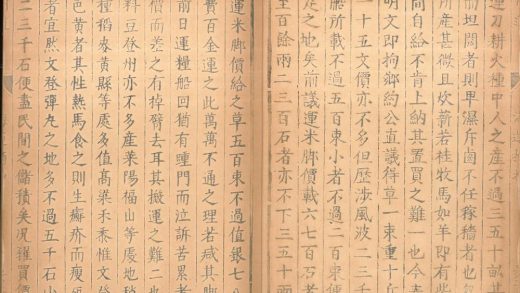 運刀耕火種中人之產不過三五十畝其
而坦闊者則卑濕斥鹵不任稼穡者也
所產甚微且炊薪若桂牧馬如羊即有此
間自給不肯上納其置買之難一也今春
明文即拘鄉約公直議得草一束重十斤
一十五文價亦不多但歷涉風波二三千
所載不過五百束小者不過二百束便
定之地矣前議運米脚價載六七百石者
至百餘兩二三百石者亦不下三五十兩
運米脚價給之草五百束不過值銀七八
費百金運之此萬萬不通之理若減其脚
前日運糧船回猶有踵門而泣訴苦累者
價而差之有掉臂去耳其搬運之難二也
料豆登州亦不多產萊陽福山等處地稍
種稻黍黃縣等處多值高粱禾黍惟文登
色黃者其性熱馬食之則生癬疥而瘦
者宜然文登彈丸之地多不過五千石小
二三千石便盡民間之儲積矣況糴買價